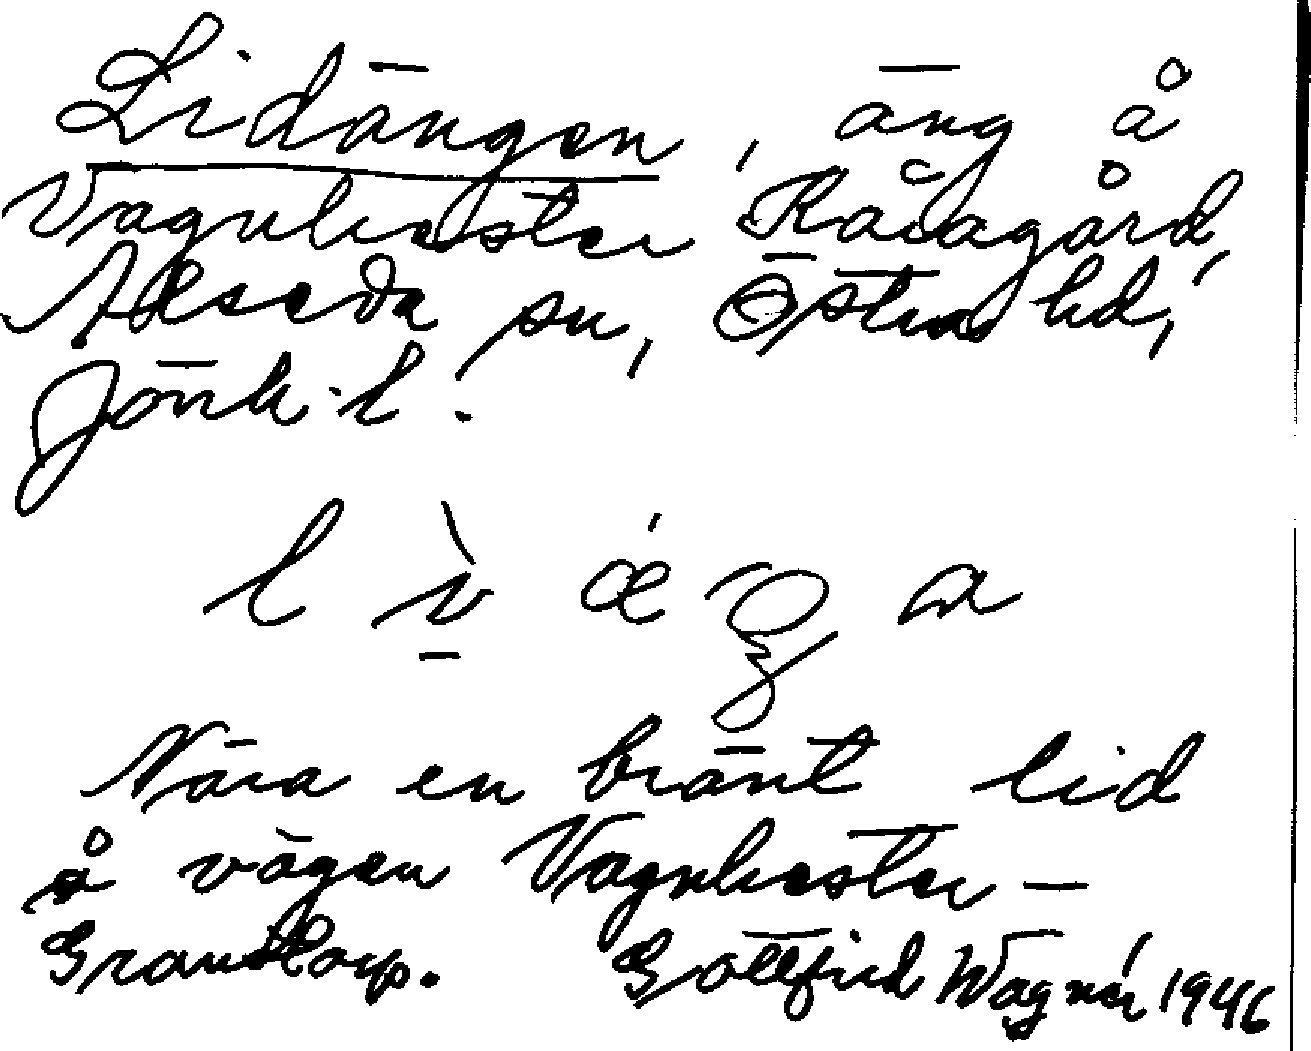 Lidängen, äng å
Vagnhester Råsagård,
Alseda sn, Östra hd,
Jönk. l.
Nära en bränt lid
å vägen Vagnhester –
Granstorp. Gottfrid Wagnér 1946